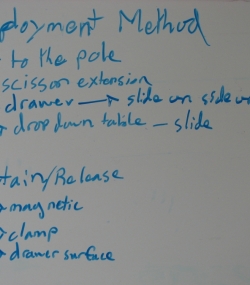 ployment Method
to the pole
scissor extension
drawer → slide on side
→ drop down table - slide
tain/Release
→ magnetic
→ clamp
→ drawer surface